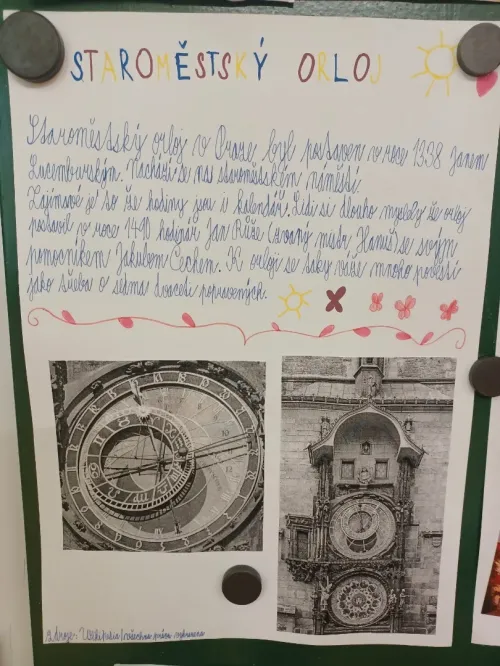 STAROMĚSTSKÝ ORLOJ
Staroměstský orloj v Praze byl postaven v roce 1338 Janem
Lucemburským. Nachází se na staroměstském náměstí.
Zajímavé je to že hodiny jsou i kalendář. Lidi si dlouho mysleli že orloj
postavil v roce 1490 hodinář Jan Růže (zvaný mistr Hanuš) se svým
pomocníkem Jakubem Čechem. K orloji se taky váže mnoho pověstí
jako třeba o sedma dvaceti popravených.
Zdroje: Wikipedia (všechna práva vyhrazena